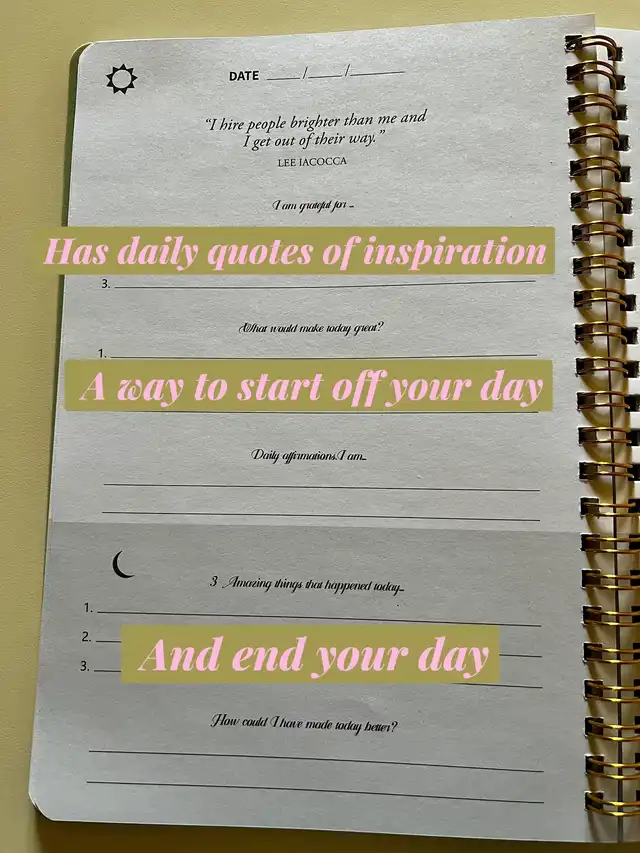 DATE ____/____/______
“I hire people brighter than me and
I get out of their way.”
LEE IACOCCA
I am grateful for ...
Has daily quotes of inspiration
3.
What would make today great?
1.
A way to start off your day
Daily affirmations. I am...
3 Amazing things that happened today...
1.
2.
And end your day
3.
How could I have made today better?